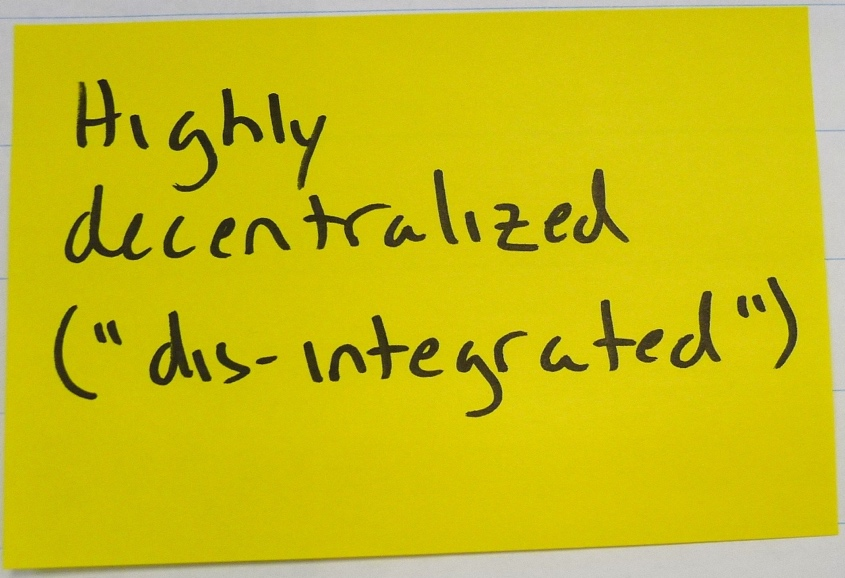 Highly
decentralized
("dis-integrated")